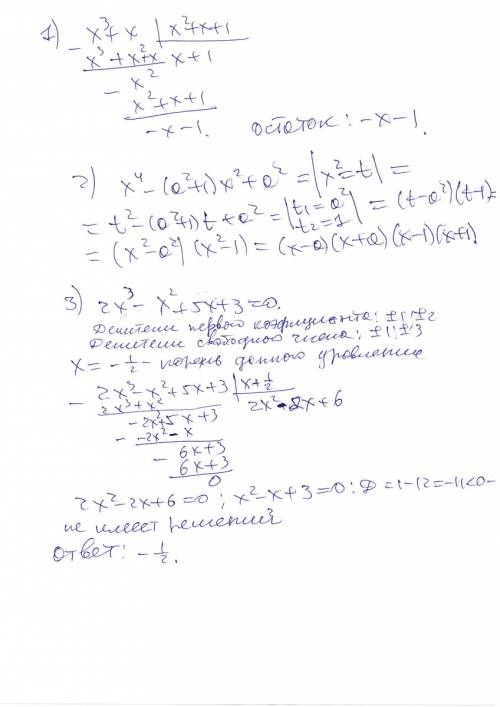 1) - x³ + x | x² + x + 1
x³ + x² + x x + 1
- x²
x² + x + 1
- x - 1. остаток: - x - 1.
2) x⁴ - (a² + 1) x² + a² = |x² = t| =
= t² - (a² + 1) t + a² = |t₁ = a² t₂ = 1| = (t - a²) (t - 1) =
= (x² - a²) (x² - 1) = (x - a)(x + a)(x - 1)(x + 1)
3) 2x³ - x² + 5x + 3 = 0.
Делители первого коэфициента: ±1; ±2
Делители свободного числа: ±1; ±3
x = - 1/2 - корень данного уровнения
- 2x³ - x² + 5x + 3 | x + 1/2
2x³ + x² 2x² - 2x + 6
- 2x² + 5x + 3
- - 2x² - x
- 6x + 3
6x + 3
0
2x² - 2x + 6 = 0; x² - x + 3 = 0: D = 1 - 12 = - 11 < 0 -
не имеет решений
ответ: - 1/2.